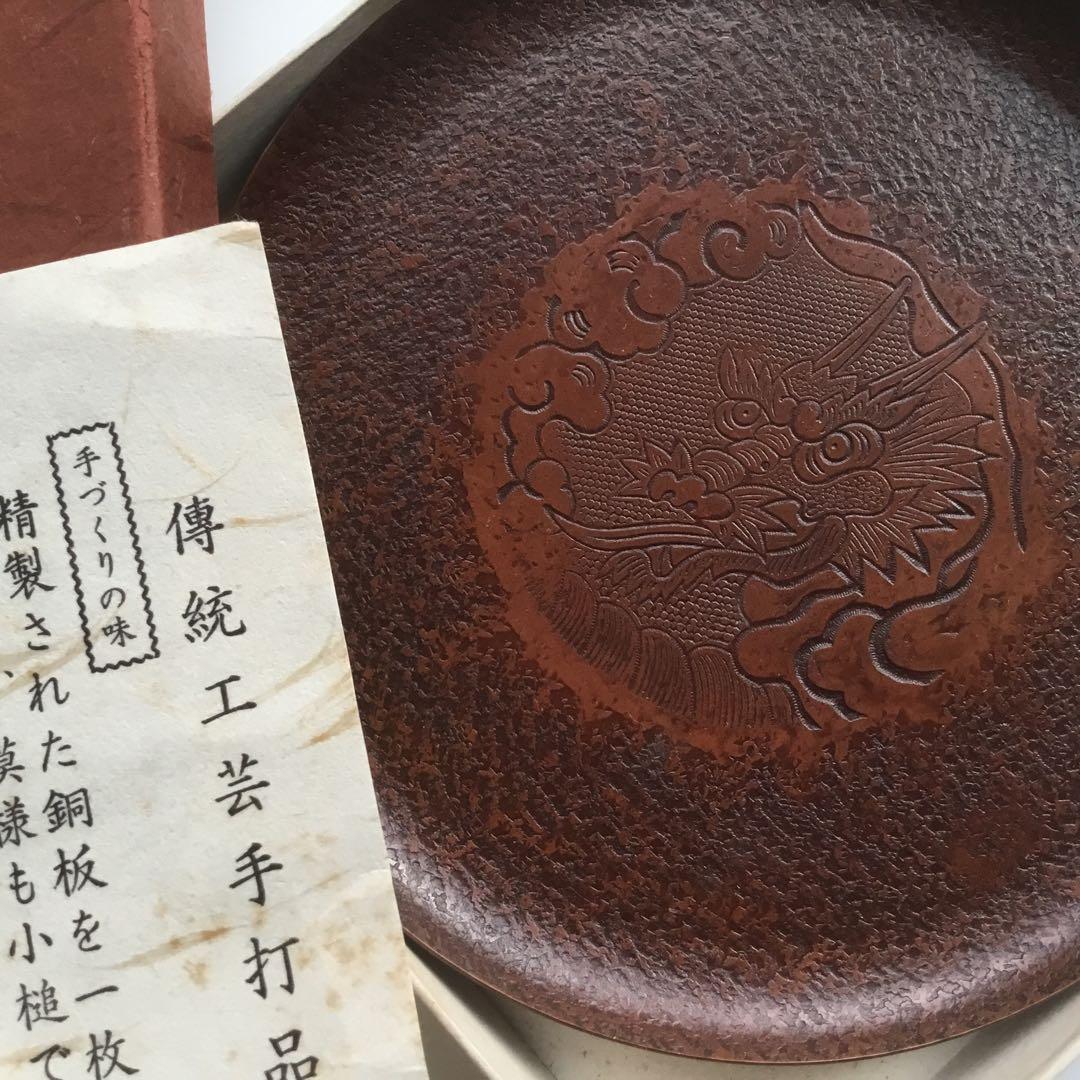 傳統工芸手打品
手づくりの味
精製された銅板を一枚
模様も小槌で